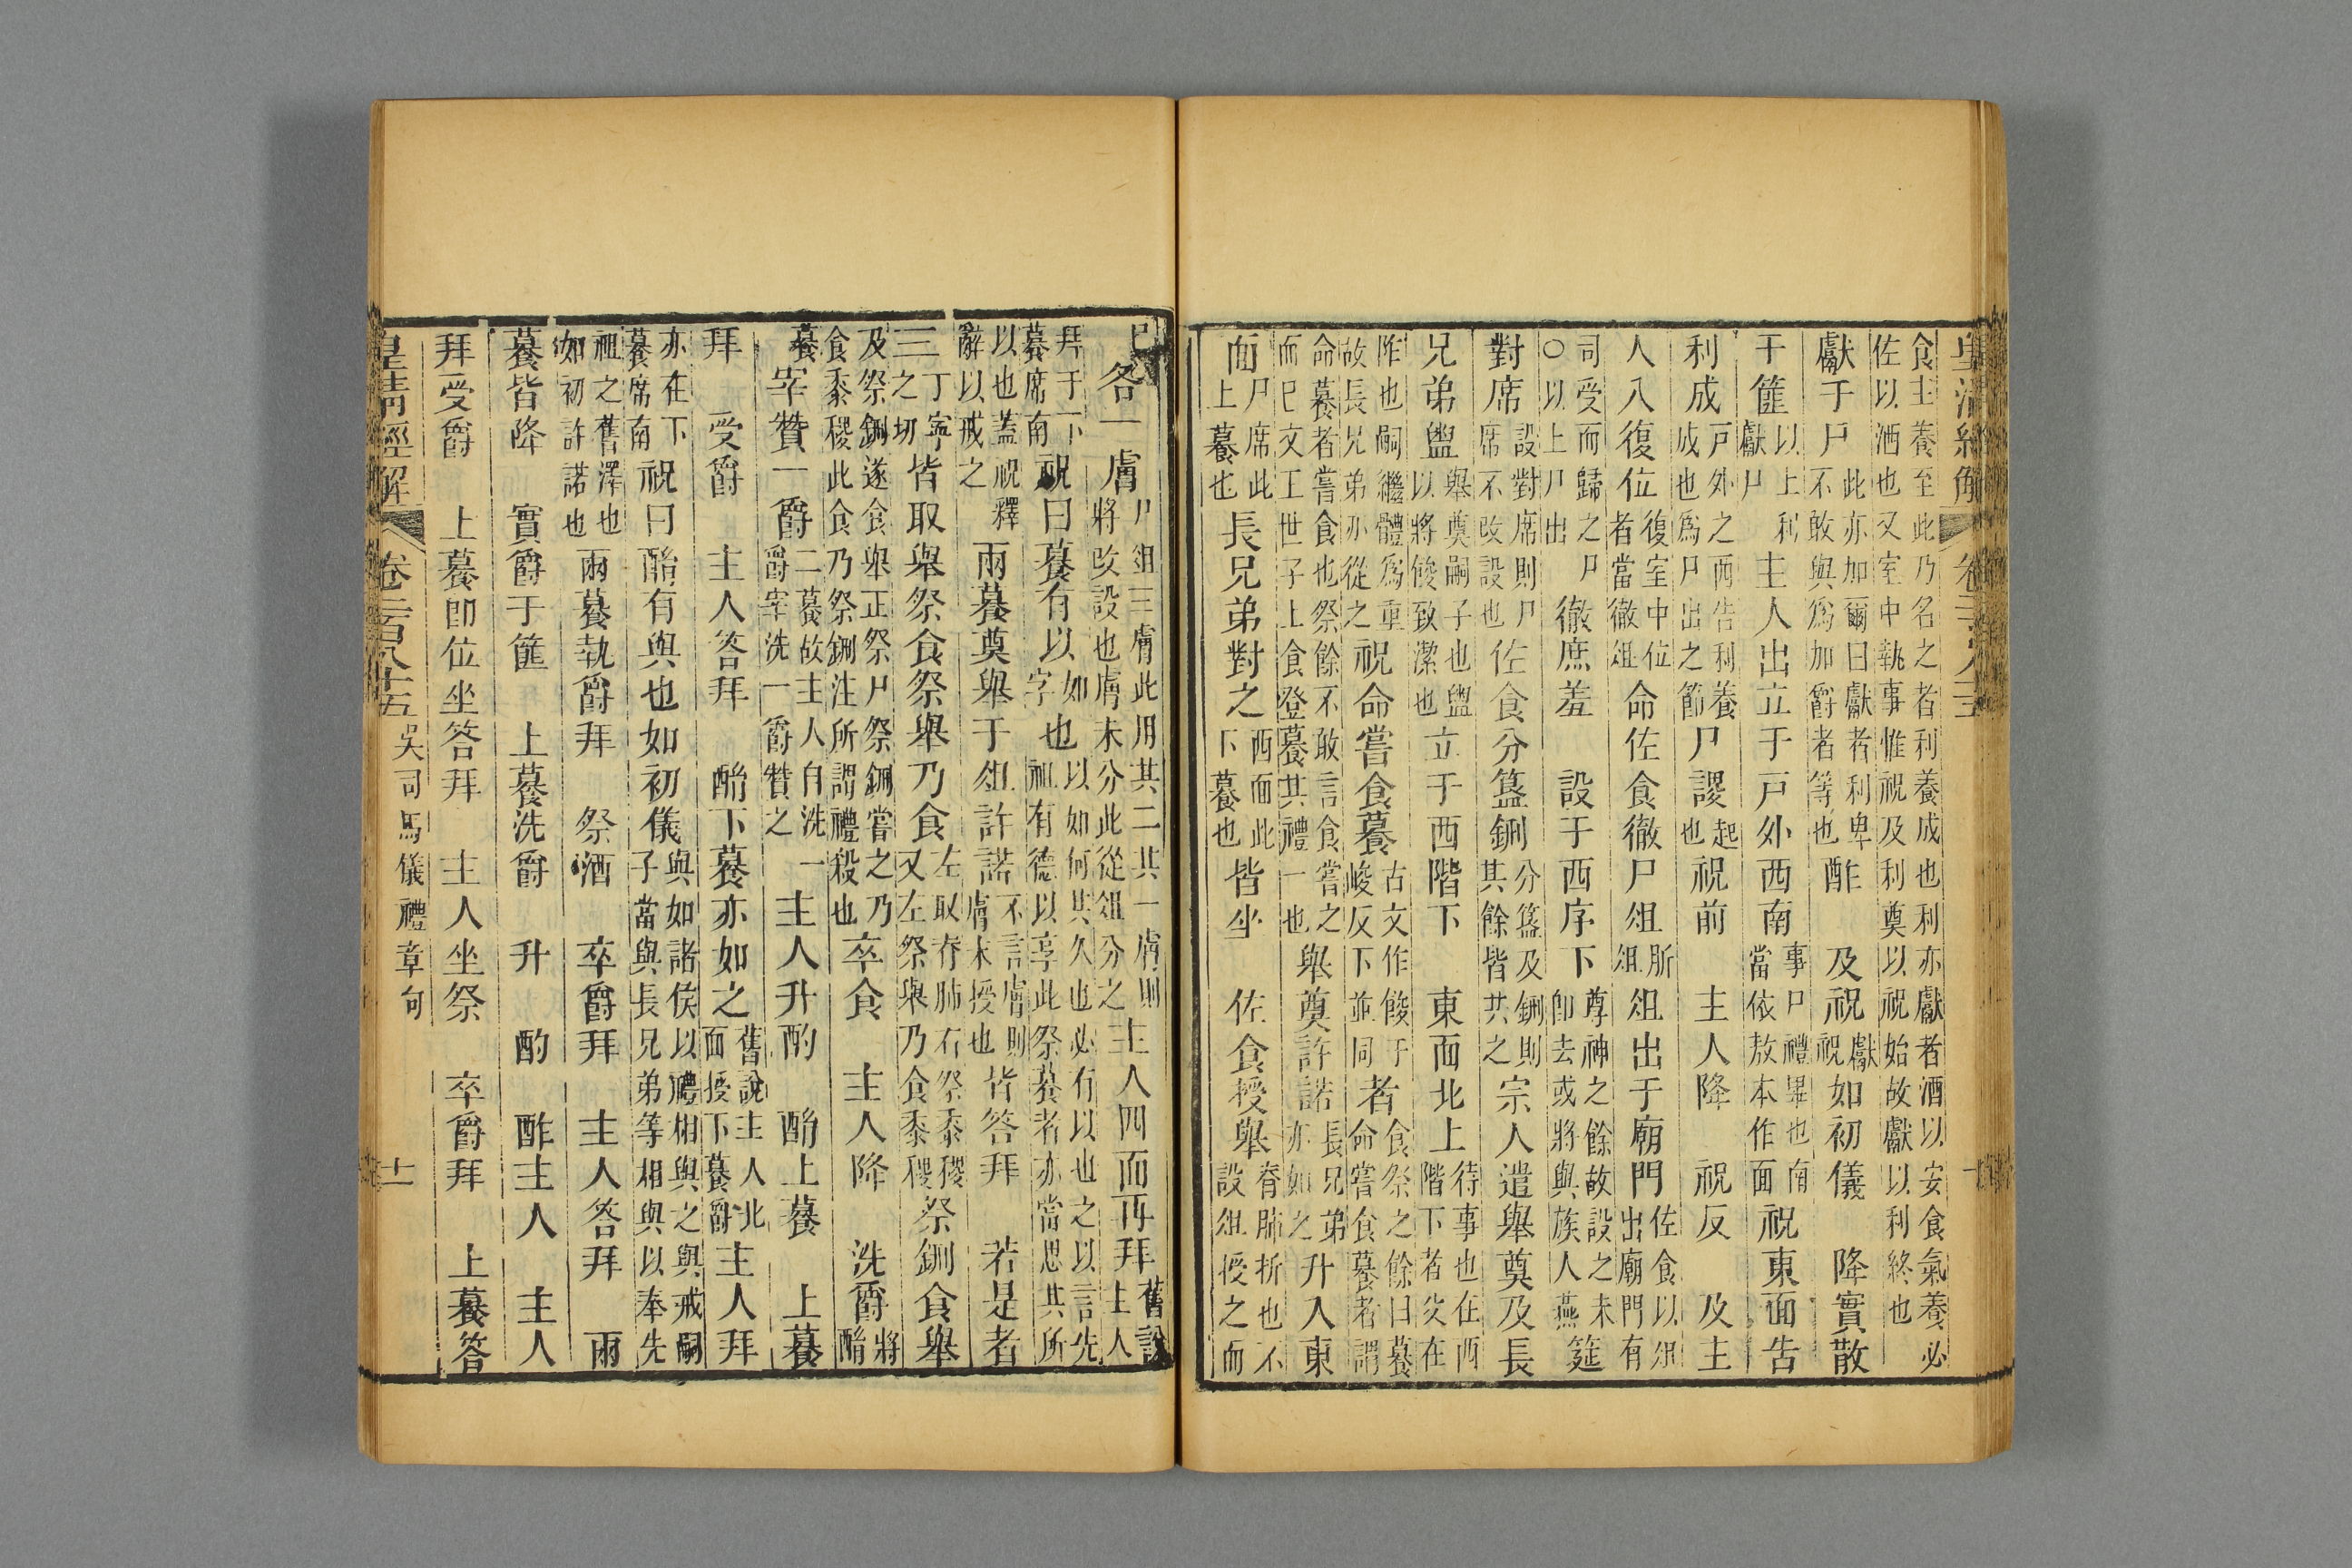 皇清經解 卷二百八十五
食主養至此乃名之者利養成也利亦獻者酒以安食氣養必佐以酒也又室中執事惟祝及利奠以祝始故獻以利終也
獻于尸此亦加爾曰獻者利卑不敢與爲加爵者等也酢 及祝獻祝如初儀 降實散
于篚以上利獻尸主人出立于戶外西南事尸禮畢也南當依敖本作面祝東面告
利成戶外之西告利養成也爲尸出之節尸謖起也祝前 主人降 祝反 及主
人入復位復室中位者當徹俎命佐食徹尸俎肵俎俎出于廟門佐食以俎出廟門有
司受而歸之尸○以上尸出徹庶羞 設于西序下尊神之餘故設之未卽去或將與族人燕筵
對席設對席則尸席不改設也佐食分簋鉶分簋及鉶則其餘皆共之宗人遣舉奠及長
兄弟盥舉奠嗣子也盥以將餕致潔也立于西階下 東面北上待事也在西階下者次在
阼也嗣繼體爲重故長兄弟亦從之祝命嘗食籑古文作餕于峻反下並同者食祭之餘曰籑命嘗食籑者謂
命籑者嘗食也祭餘不敢言食嘗之而已文王世子上食登籑其禮一也舉奠許諾長兄弟亦如之升入東
面尸席此上籑也長兄弟對之西面此下籑也皆坐 佐食授舉脊肺折也不設俎授之而
已各一膚尸俎三膚此用其二其一膚則將改設也膚未分此從俎分之主人西面再拜舊說主人
拜于下籑席南祝曰籑有以如字也以如何其久也必有以也之以言先祖有德以享此祭籑者亦當思其所
以也蓋祝釋辭以戒之兩籑奠舉于俎許諾不言膚則膚未授也皆答拜 若是者
三丁寧之切皆取舉祭食祭舉乃食左取脊肺右祭黍稷又左祭舉乃食黍稷祭鉶食舉
及祭鉶遂食舉正祭尸祭鉶嘗之乃食黍稷此食乃祭鉶注所謂禮殺也卒食 主人降 洗爵將酳
籑宰贊一爵二籑故主人自洗一爵宰洗一爵贊之主人升酌 酳上籑 上籑
拜 受爵 主人答拜 酳下籑亦如之舊說主人北面授下籑爵主人拜
亦在下籑席南祝曰酳有與也如初儀與如諸侯以禮相與之與戒嗣子當與長兄弟等相與以奉先
祖之舊澤也如初許諾也兩籑執爵拜 祭酒 卒爵拜 主人答拜 兩
籑皆降 實爵于篚 上籑洗爵 升酌 酢主人 主人
拜受爵 上籑卽位坐答拜 主人坐祭 卒爵拜 上籑答
皇清經解 卷二百八十五 吳司馬儀禮章句 十一